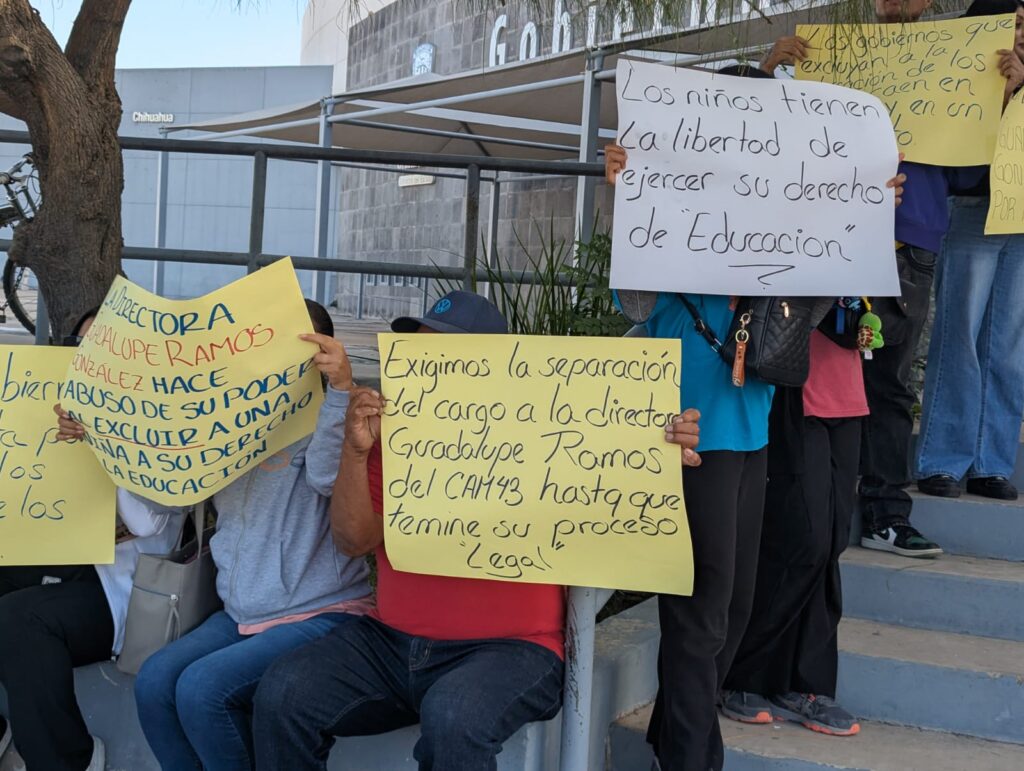 Gobier
Chihuahua
Los gobiernos que
excluyan a la
de los
caen en
y en un
Los niños tienen
La libertad de
ejercer su derecho
de "Educacion"
POR
LA DIRECTORA
GUADALUPE RAMOS
GONZÁLEZ HACE
ABUSO DE SU PODER
AL EXCLUIR A UNA
NIÑA A SU DERECHO
LA EDUCACIÓN
Exigimos la separación
del cargo a la director
Guadalupe Ramos
del CAM43 hasta que
temine su proceso
"Legal"
bierr
ta p
los
e los